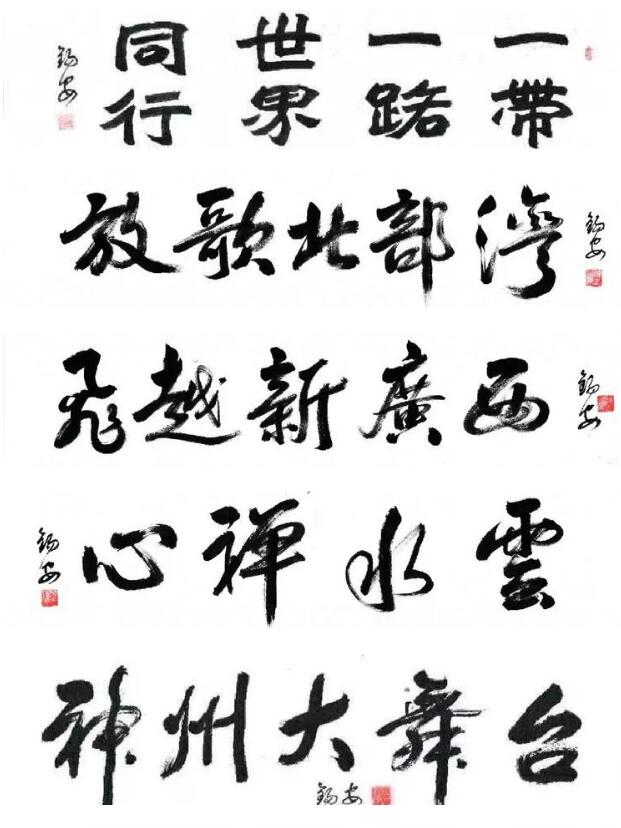 一帶
一路
世界
同行
錫安
放歌北部灣
錫安
飛越新廣西
錫安
雲水禅心
錫安
神州大舞台
錫安